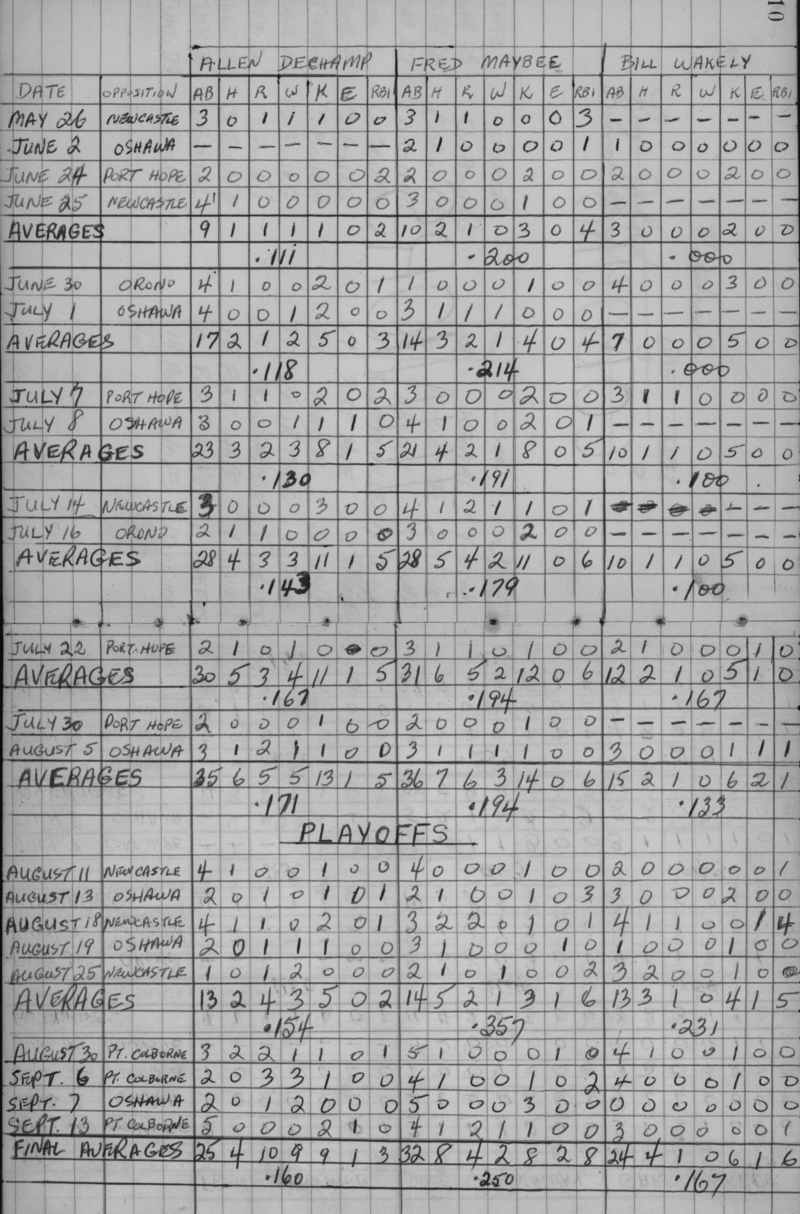 10
ALLEN DECHAMP FRED MAYBEE BILL WAKELY
DATE OPPOSITION AB H R W K E RBI AB H R W K E RBI AB H R W K E RBI
MAY 26 NEWCASTLE 3 0 1 1 1 0 0 3 1 1 0 0 0 3 – – – – – – –
JUNE 2 OSHAWA – – – – – – – 2 1 0 0 0 0 1 1 0 0 0 0 0 0
JUNE 24 PORT HOPE 2 0 0 0 0 0 2 2 0 0 0 2 0 0 2 0 0 0 2 0 0
JUNE 25 NEWCASTLE 4 1 0 0 0 0 0 3 0 0 0 1 0 0 – – – – – – –
AVERAGES 9 1 1 1 1 0 2 10 2 1 0 3 0 4 3 0 0 0 2 0 0
.111 .200 .000
JUNE 30 ORONO 4 1 0 0 2 0 1 1 0 0 0 1 0 0 4 0 0 0 3 0 0
JULY 1 OSHAWA 4 0 0 1 2 0 0 3 1 1 1 0 0 0 – – – – – – –
AVERAGES 17 2 1 2 5 0 3 14 3 2 1 4 0 4 7 0 0 0 5 0 0
.118 .214 .000
JULY 7 PORT HOPE 3 1 1 0 2 0 2 3 0 0 0 2 0 0 3 1 1 0 0 0 0
JULY 8 OSHAWA 3 0 0 1 1 1 0 4 1 0 0 2 0 1 – – – – – – –
AVERAGES 23 3 2 3 8 1 5 21 4 2 1 8 0 5 10 1 1 0 5 0 0
.130 .191 .100
JULY 14 NEWCASTLE 3 0 0 0 3 0 0 4 1 2 1 1 0 1 – – –
JULY 16 ORONO 2 1 1 0 0 0 0 3 0 0 0 2 0 0 – – – – – – –
AVERAGES 28 4 3 3 11 1 5 28 5 4 2 11 0 6 10 1 1 0 5 0 0
.143 .179 .100
JULY 22 PORT HOPE 2 1 0 1 0 0 0 3 1 1 0 1 0 0 2 1 0 0 0 1 0
AVERAGES 30 5 3 4 11 1 5 31 6 5 2 12 0 6 12 2 1 0 5 1 0
.167 .194 .167
JULY 30 PORT HOPE 2 0 0 0 1 0 0 2 0 0 0 1 0 0 – – – – – – –
AUGUST 5 OSHAWA 3 1 2 1 1 0 0 3 1 1 1 1 0 0 3 0 0 0 1 1 1
AVERAGES 35 6 5 5 13 1 5 36 7 6 3 14 0 6 15 2 1 0 6 2 1
.171 .194 .133
PLAYOFFS
AUGUST 11 NEWCASTLE 4 1 0 0 1 0 0 4 0 0 0 1 0 0 2 0 0 0 0 0 1
AUGUST 13 OSHAWA 2 0 1 0 1 0 1 2 1 0 0 1 0 3 3 0 0 0 2 0 0
AUGUST 18 NEWCASTLE 4 1 1 0 2 0 1 3 2 2 0 1 0 1 4 1 1 0 0 1 4
AUGUST 19 OSHAWA 2 0 1 1 1 0 0 3 1 0 0 0 1 0 1 0 0 0 1 0 0
AUGUST 25 NEWCASTLE 1 0 1 2 0 0 0 2 1 0 1 0 0 2 3 2 0 0 1 0 0
AVERAGES 13 2 4 3 5 0 2 14 5 2 1 3 1 6 13 3 1 0 4 1 5
.154 .357 .231
AUGUST 30 PT. COLBORNE 3 2 2 1 1 0 1 5 1 0 0 0 1 0 4 1 0 0 1 0 0
SEPT. 6 PT. COLBORNE 2 0 3 3 1 0 0 4 1 0 0 1 0 2 4 0 0 0 1 0 0
SEPT. 7 OSHAWA 2 0 1 2 0 0 0 5 0 0 0 3 0 0 0 0 0 0 0 0 0
SEPT. 13 PT COLBORNE 5 0 0 0 2 1 0 4 1 2 1 1 0 0 3 0 0 0 0 0 1
FINAL AVERAGES 25 4 10 9 9 1 3 32 8 4 2 8 2 8 24 4 1 0 6 1 6
.160 .250 .167